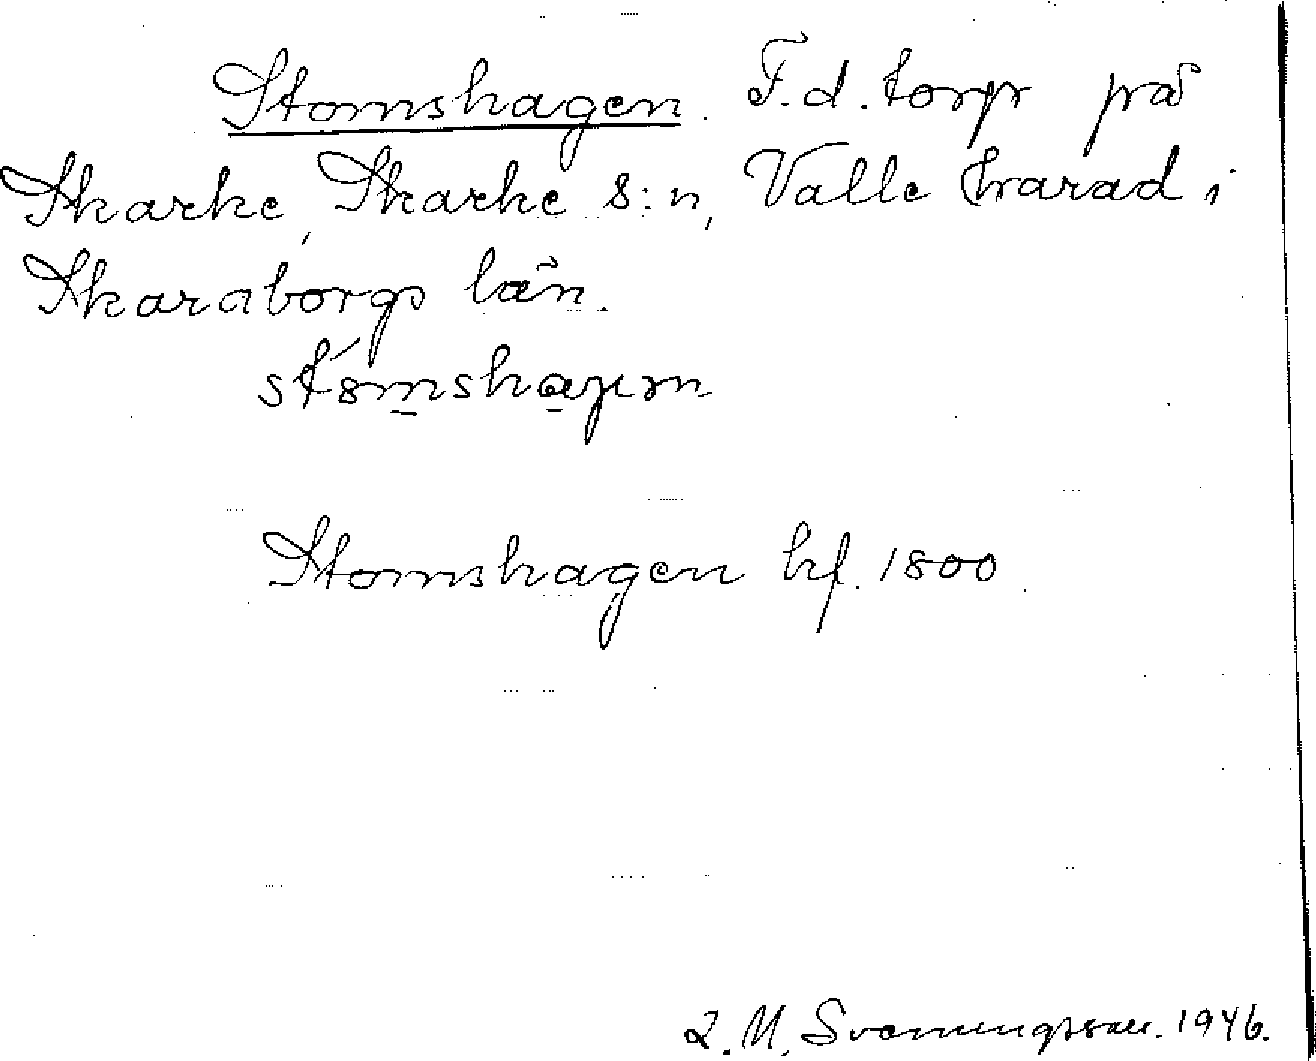 Stomshagen. F.d. torp på
Skarke, Skarke s:n, Valle härad i
Skaraborgs län.
Stomshagen hf. 1800
Sveningsson. 1946.